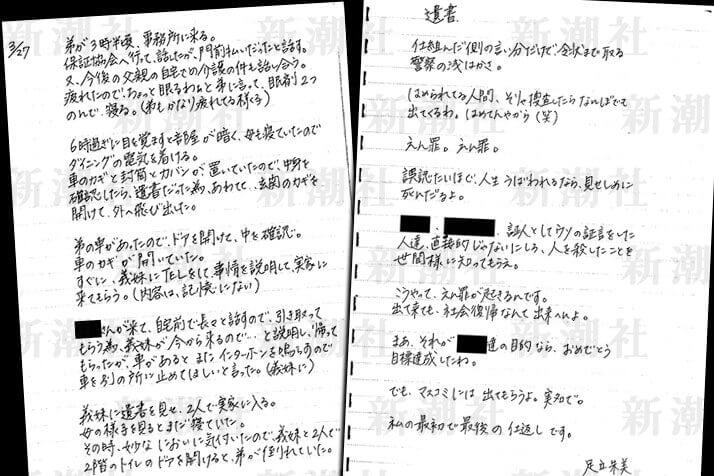 3/27
弟が3時半頃、事務所に来る。
保証協会へ行って、話したが、門前払いだったと話す。
又、今後の父親の自宅での介護の件も話し合う。
疲れたので、ちょっと眠るわねと弟に言って、眠剤2つ
のんで、寝る。(弟もかなり疲れてる様子)
6時過ぎに目を覚ますと部屋が暗く、母も寝ていたので
ダイニングの電気を着ける。
車のカギと封筒とカバンが置いていたので、中身を
確認したら、遺書だった為、あわてて、玄関のカギを
開けて、外へ飛び出した。
弟の車があったので、ドアを開けて、中を確認。
車のカギが開いていた。
すぐに、義妹にTELをして事情を説明して、実家に
来てもらう。(内容は、記憶にない)
さんが来て、自宅前で長々と話すので、引き取って
もらう為、義妹が今から来るので…と説明し、帰って
もらったが、車があるとまたインターホンを鳴らすので
車を別の所に止めてほしいと言った。(義妹に)
義妹に遺書を見せ、2人で実家に入る。
母の様子を見るとまだ寝ていた。
その時、妙なにおいに気付いたので、義妹と2人で
2階のトイレのドアを開けると、弟が倒れていた。
遺書
仕組んだ側の言い分だけで令状まで取る
警察の浅はかさ。
はめられてる人間、そりゃ捜査したらなんぼでも
出てくるわ。はめてんやから(笑)
えん罪。えん罪。
誤認だいほで、人生うばわれるなら、見せしめに
死んだるよ。
、証人としてウソの証言をした
人達、直接的じゃないにしろ、人を殺したことを
世間様に知ってもらえ。
こうやって、えん罪が起きるんです。
出て来ても、社会復帰なんて出来へんよ。
まぁ、それが 達の目的なら、おめでとう
目標達成したね。
でも、マスコミには出てもらうよ。実名で。
私の最初で最後の仕返しです。
足立朱美
新潮社
新潮社
新潮社
新潮社